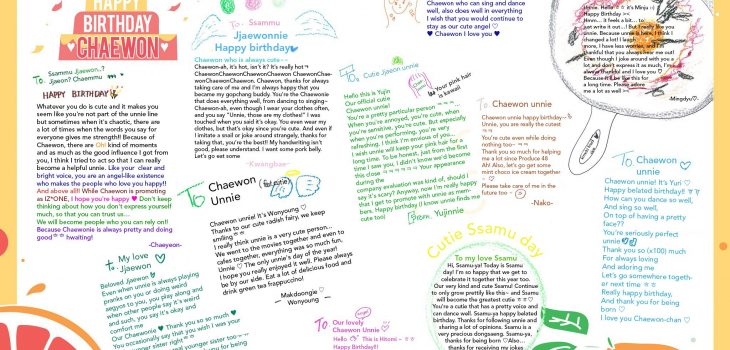 HAPPY
BIRTHDAY
CHAEWON
To. Ssamu Jaewon..?
Jjaeon? Chaemmu
HAPPY BIRTHDAY!
Whatever you do is cute and it makes you
seem like you're not part of the unnie line
but sometimes when it's chaotic, there are
a lot of times when the words you say for
everyone gives me strength!! Because of
Chaewon, there are Oh! kind of moments
and as much as the good influence I got from
you, I think I tried to act so that I can really
become a helpful unnie. Like your clear and
bright voice, you are an angel-like existence
who makes the people who love you happy!!
And above all! While Chaewon is promoting
as IZ*ONE, I hope you're happy ♥ Don't keep
thinking about how you don't express yourself
much, so that you can trust us...
We will become people who you can rely on!!
Because Chaewonie is always pretty and doing
good hwaiting!
-Chaeyeon-
To. Ssammu
Jjaewonnie
Happy birthday♥
Chaewon who is always cute~~
Chaewon-ah, it's hot, isn't it? It's really hot
ChaewonChaewonChaewonChaewon Chaewon Chae-
won Chaewon Chaewon Chaewon, thanks for always
taking care of me and I'm always happy that you
became my gongchang buddy. You're the Chaewonnie
that does everything well, from dancing to singing~
Chaewon-ah, even though I wear your clothes,
and you say "Unnie, those are my clothes!" I was
touched when you said it's okay. You even wear my
clothes, but that's okay since you're cute. And even if
I imitate a snail or joke around strangely, thanks for
taking that, you're the best!! My handwriting isn't
good, please understand. I want some pork belly.
Let's go eat some
-Kwangbae-
To. Cutie Jjaeon unnie
Hello this is Yujin
Our official cutie
Chaewon unnie!
You're a pretty particular person
When you're annoyed, you're cute, when
you're sensitive, you're cute. But especially
when you're performing, you're very
refreshing. I think I'm envious of you...
I wish unnie will keep your pink hair for a
long time. To be honest, just from the first
time I saw you, I didn't know we'd become
this close Your appearance
during the
company evaluation was kind of, should I
say it's scary? Anyway, now I'm really happy
that I get to promote with you unnie as mem-
bers. Happy birthday (I know unnie finds me
cute too)
From. Yujinnie
Your pink hair
is kawaii
Chaewon who can sing and dance
well, also does well in everything
I wish that you would continue to
stay as our cute angel ~
♥ Chaewon I love you ♥
Hello it's Minju :-)
Happy Birthday ><
Hmm.. It feels a bit... to
just write it out...! But I really like you
unnie. Because unnie is here, I think I
changed a lot! I laugh
more, I have less worries, and I'm
thankful that you always hear me out!
Even though I joke around with you a
lot and don't express it as much, I'm
always thankful and I love you ♡
Because it's like this for a
long time, Please adore
me a lot as well ><
-Mingdyu♡-
To. Chaewon unnie
Chaewon unnie happy birthday~
You are really the cutest
You're cute even while doing
nothing too~
Thank you so much for helping
me a lot since Produce 48
Ah! Also, let's go get some
mint choco ice cream together
♡
Please take care of me in the
future too ~
-Nako-
To. Chaewon
unnie
Chaewon unnie! It's Yuri ♡
Happy belated birthday!!
How can you dance so well,
And sing so well,
On top of having a pretty
face??
You're seriously perfect
unnie♥
Thank you so (x100) much
For always loving
And adoring me
Let's go somewhere togeth-
er next time
Really happy birthday,
And thank you for being
born ♡
I love you Chaewon-chan ♡
To. Chaewon
Unnie
Chaewon unnie! It's Wonyoung ♡
Thanks to our cute radish fairy, we keep
smiling
I really think unnie is a very cute person...
We went to movies together and even to
cafes together, everything was so much fun,
Unnie ♡ The only unnie's day of the year!
I hope you really enjoyed it well. Please always
be by our side. Eat a lot of delicious food and
drink green tea frappuccino!
Makdoongie ♡
Wonyoung
To. My love
Jjaewon
Beloved Jjaewon
Even when unnie is always playing
pranks on you or doing weird
aegyos to you, you play along and
when other people say it's weird
and such, you say it's okay and
comfort me.
Our Chaewonie ♥ Thank you so much ♥
You occasionally say that you wish I was your
sister right
younger sister too~
Cutie Ssamu day
To my love Ssamu
Hi, Ssamu-ya! Today is Ssamu
day! I'm so happy that we get to
celebrate it together this year too.
Our very kind and cute Ssamu! Continue
to only grow pretty like this~ and Ssamu
will become the greatest cutie
You're a cutie that has a pretty voice and
can dance well. Ssamu-ya happy belated
birthday. Thanks for following unnie and
sharing a lot of opinions. Ssamu is a
very precious dongsaeng. Ssamu-ya,
thanks for being born. Ssamu-ya,
happy birthday to you.♡ Also~
thanks for receiving my jokes
To. Our lovely
Chaewon Unnie ♡
Hello This is Hitomi ~
Happy Birthday!!